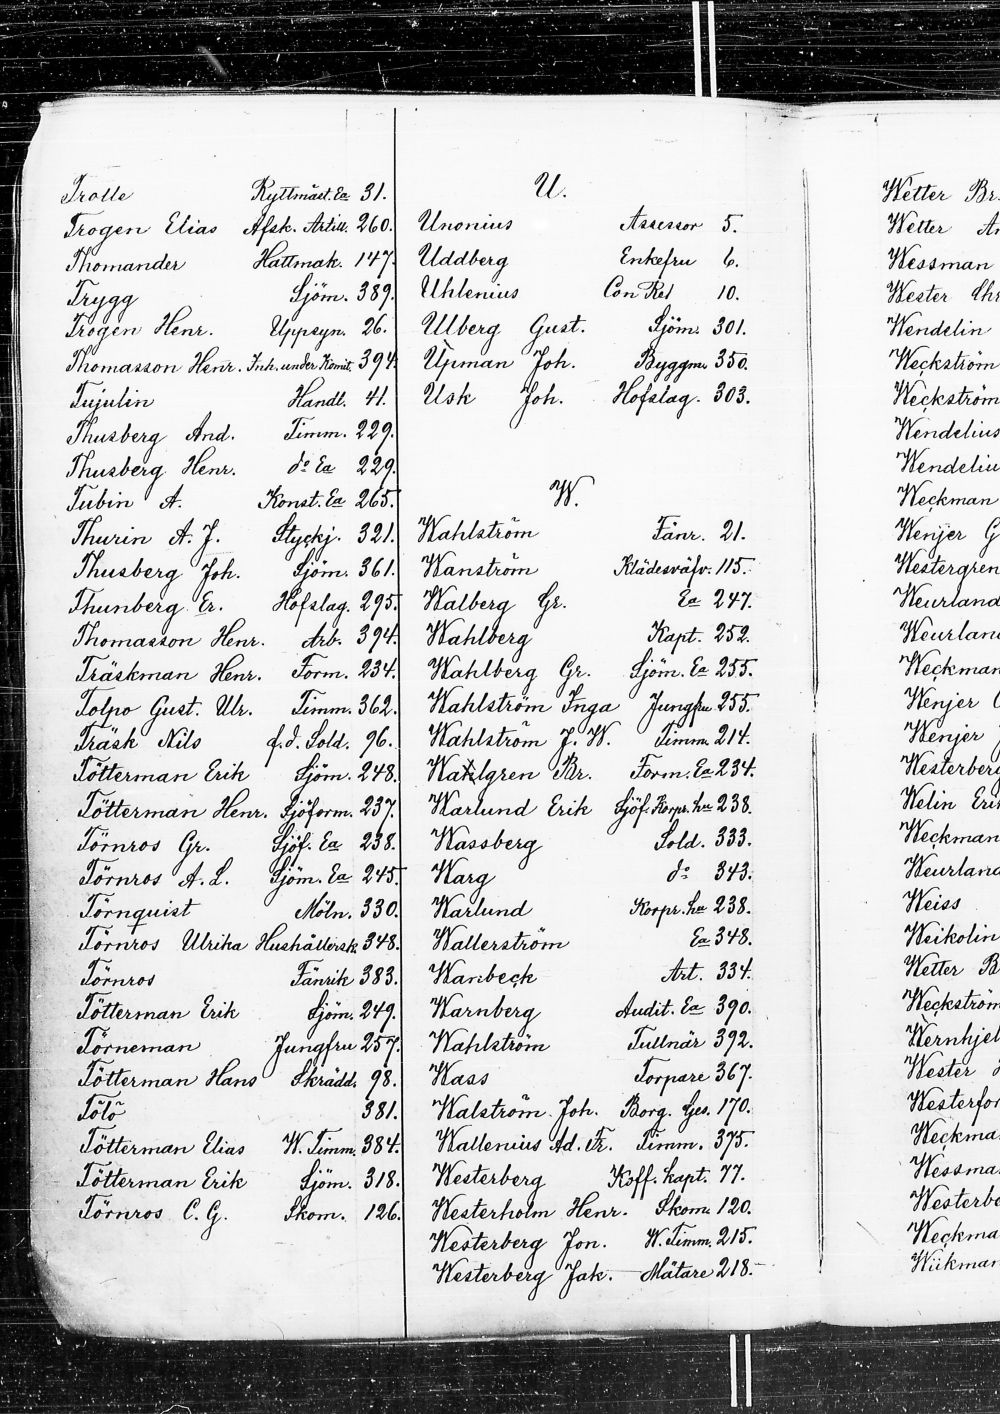 Trolle Ryttmäst. Ea 31.
Trogen Elias Afsk. Artill. 260.
Thomander Hattmak. 147.
Trygg Sjöm. 389.
Trogen Henr. Uppsyn. 26.
Thomasson Henr. Inh. under Komit. 394.
Tujulin Handl. 41.
Thusberg And. Timm. 229.
Thusberg Henr. do Ea 229.
Tubin A. Konst. Ea 265.
Thurin A. J. Styckj. 321.
Thusberg Joh. Sjöm. 361.
Thunberg Er. Hofslag. 295.
Thomasson Henr. Arb. 394.
Träskman Henr. Form. 234.
Tolpo Gust. Ulr. Timm. 362.
Träsk Nils f.d. Sold. 96.
Tötterman Erik Sjöm. 248.
Tötterman Henr. Sjöform. 237.
Törnros Gr. Sjöf. Ea 238.
Törnros A. L. Sjöm. Ea 245.
Törnquist Möln. 330.
Törnros Ulrika Hushållersk. 348.
Törnros Fänrik 383.
Tötterman Erik Sjöm. 249.
Törneman Jungfru 257.
Tötterman Hans Skrädd. 98.
Tölö 381.
Tötterman Elias W. Timm. 384.
Tötterman Erik Sjöm. 318.
Törnros C. G. Skom. 126.
U.
Unonius Assessor 5.
Uddberg Enkefru 6.
Uhlenius Con Rct 10.
Ulberg Gust. Sjöm. 301.
Upman Joh. Byggm. 350.
Usk Joh. Hofslag. 303.
W.
Wahlström Fänr. 21.
Wanström Klädesväfv. 115.
Walberg Gr. Ea 247.
Wahlberg Kapt. 252.
Wahlberg Gr. Sjöm. Ea 255.
Wahlström Inga Jungfru 255.
Wahlström J. W. Timm. 214.
Wahlgren Br. Form. Ea 234.
Warlund Erik Sjöf. Korpr. hu 238.
Wassberg Sold. 333.
Warg do 343.
Warlund Korpr. hu 238.
Wallerström Ea 348.
Wambeck Art. 334.
Warnberg Audit. Ea 390.
Wahlström Tullnär 392.
Wass Torpare 367.
Walström Joh. Borg. Ges. 170.
Wallenius Ad. Fr. Timm. 375.
Westerberg Koff. kapt. 77.
Westerholm Henr. Skom. 120.
Westerberg Jon. W. Timm. 215.
Westerberg Jak. Mätare 218.
Wetter Br.
Wetter
Wessman
Wester Chr
Wendelin
Weckström
Weckström
Wendelius
Wendeliu
Weckman
Wenjer G
Westergren
Weurland
Weurlan
Weckman
Wenjer
Wenjer
Westerberg
Welin Eri
Weckman
Weurland
Weiss
Weikolin
Wetter B
Weckström
Wernhjel
Wester
Westerfor
Weckma
Wessma
Westerbe
Weckma
Wiikman